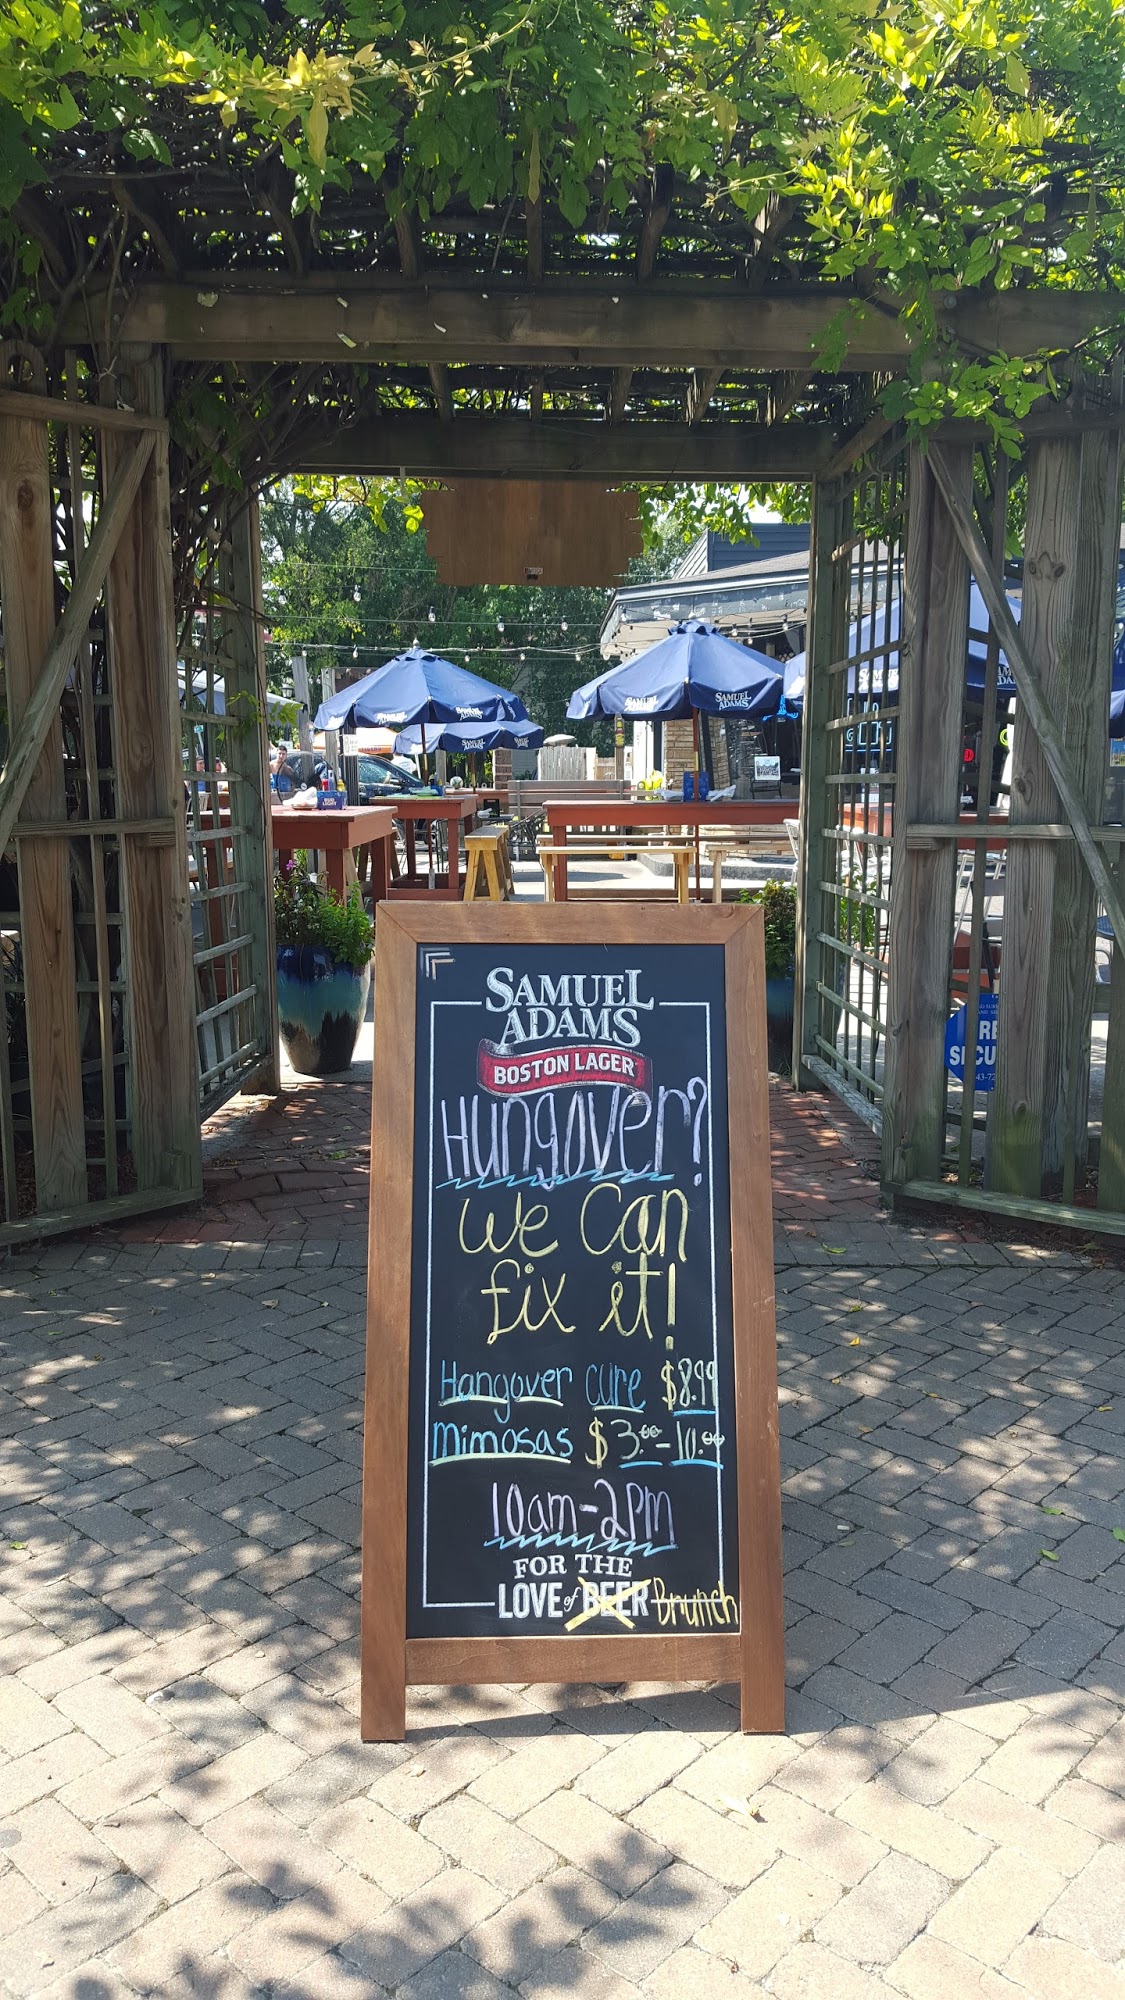 SAMUEL
ADAMS
SAMUEL
ADAMS
SAMUEL
ADAMS
SAMUEL
ADAMS
BOSTON LAGER
Hungover?
We Can
fix it!
Hangover cure $8.99
Mimosas $3.00-10.00
10am-2PM
FOR THE
LOVE of BEER Brunch